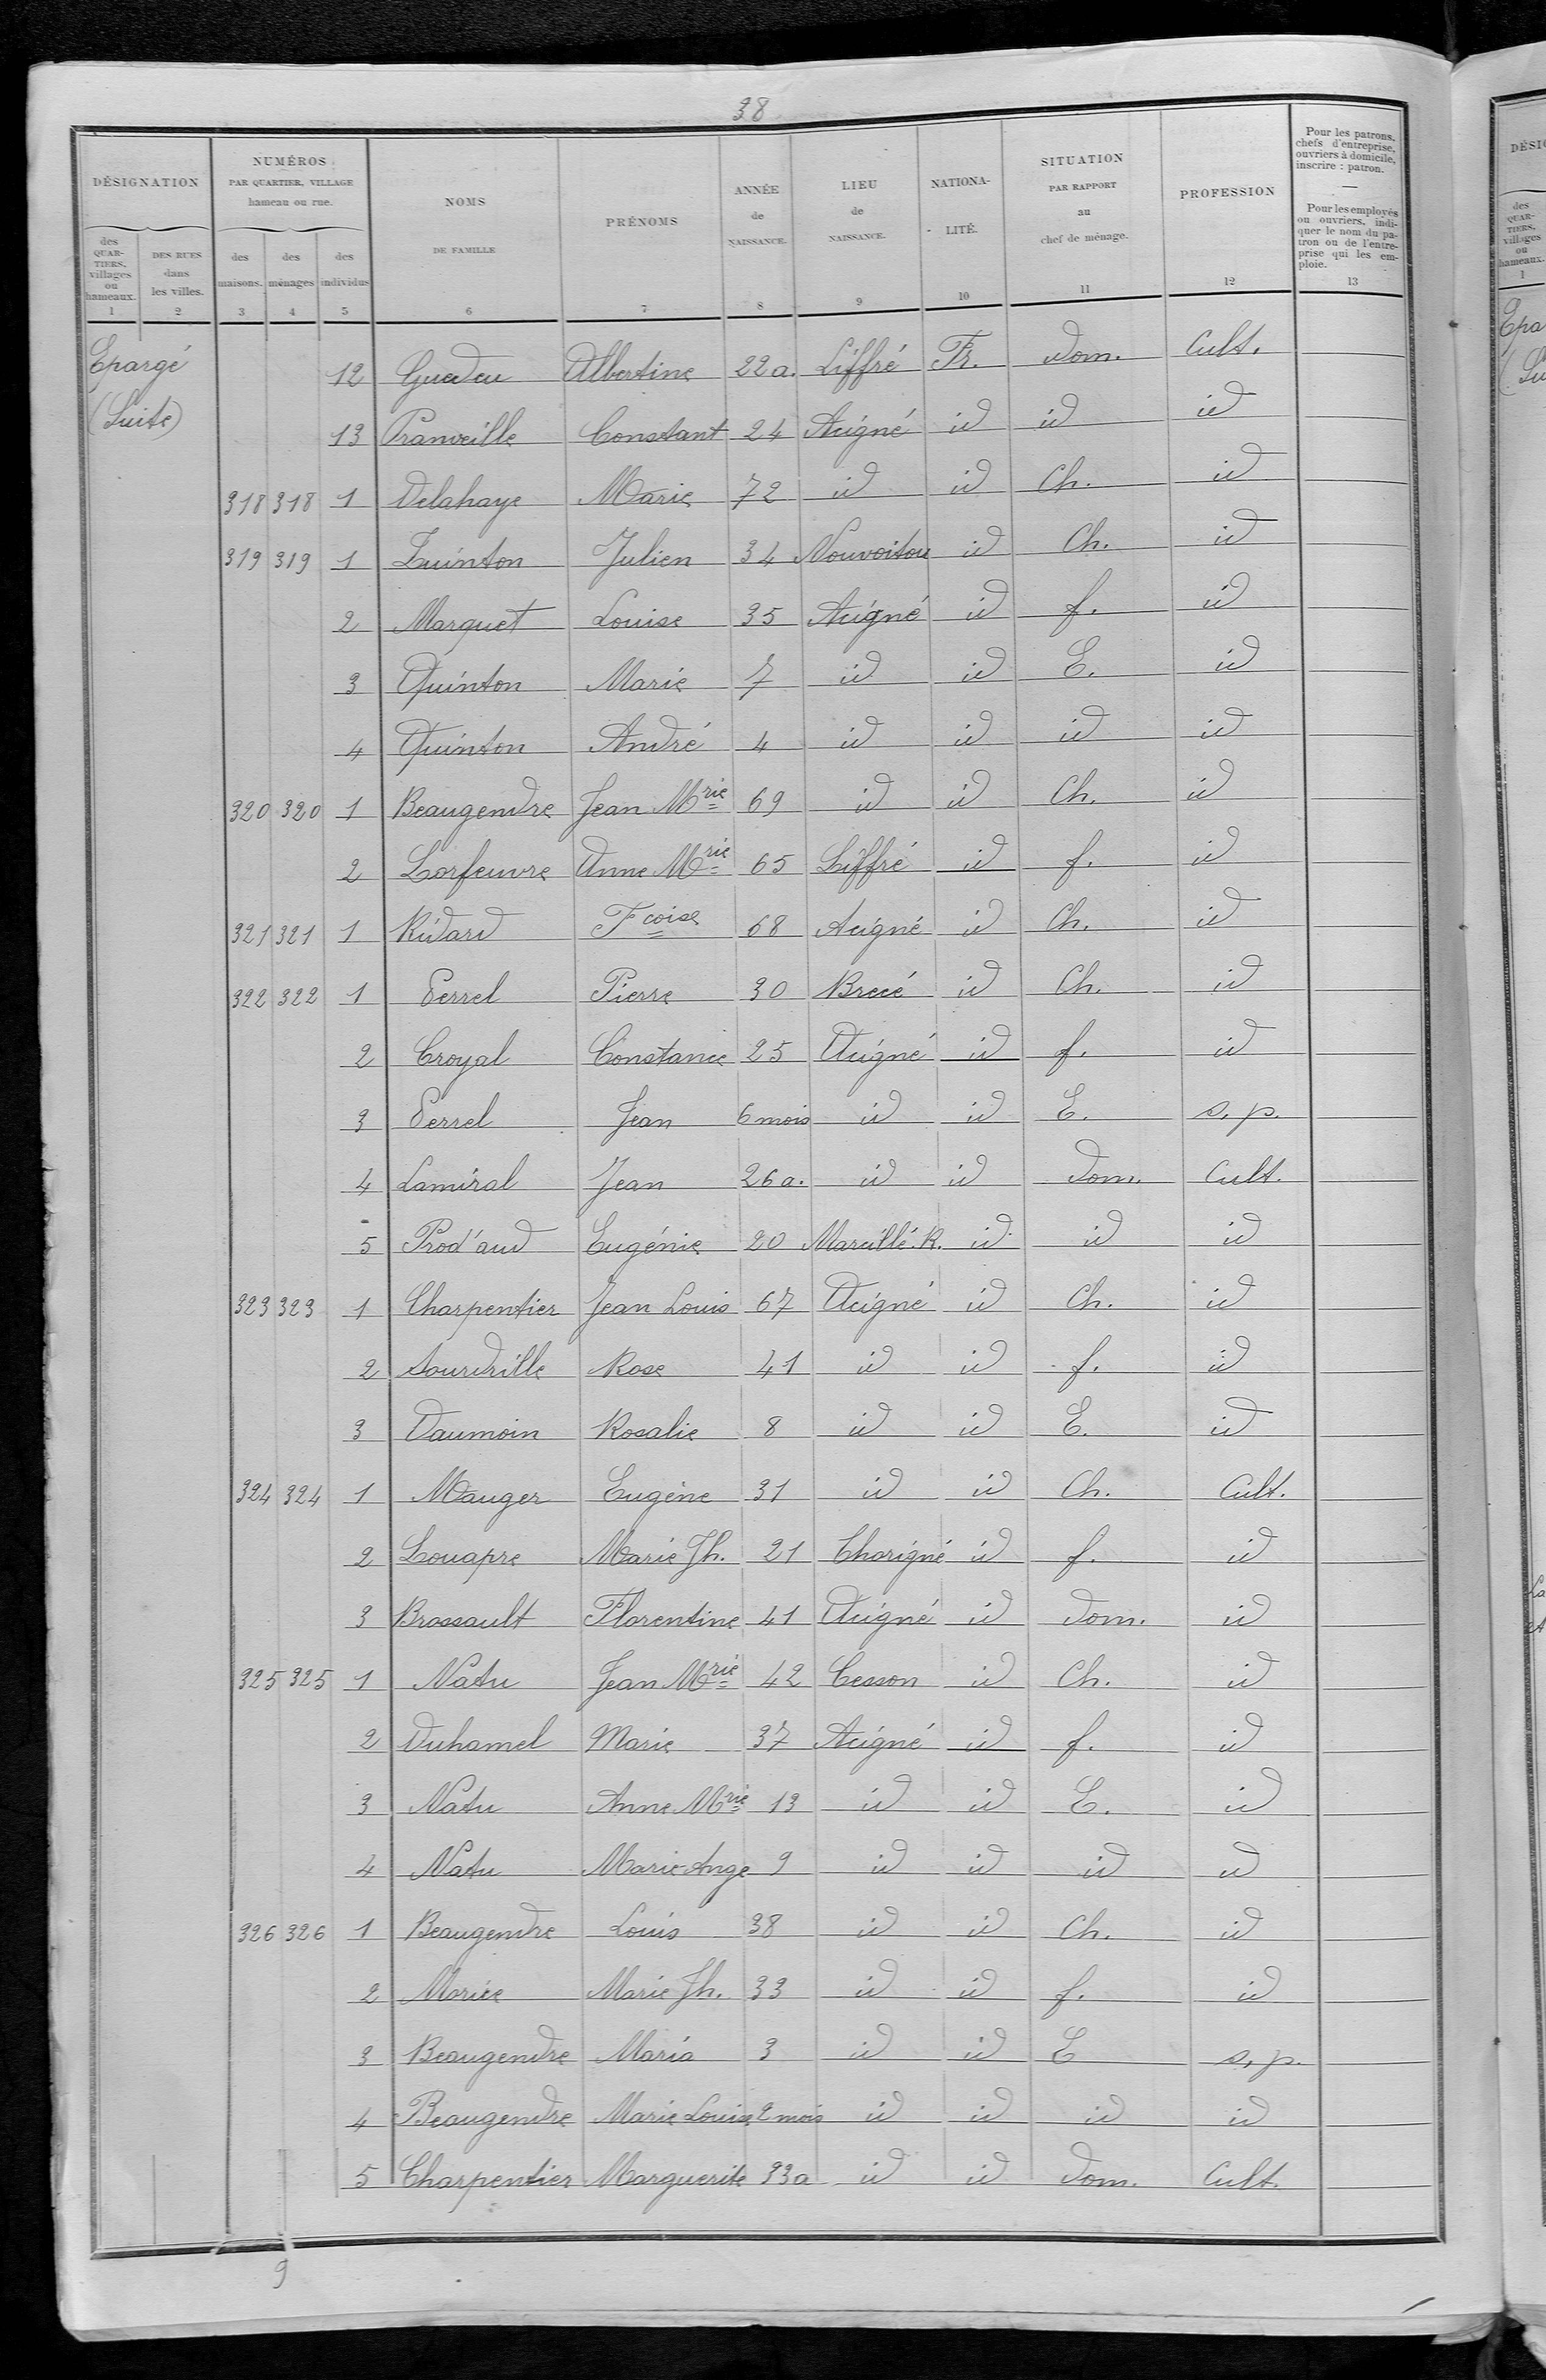 38
DÉSIGNATION
NUMÉROS
PAR QUARTIER, VILLAGE
hameau ou rue.
NOMS
DE FAMILLE
PRÉNOMS
ANNÉE
de
NAISSANCE.
LIEU
de
NAISSANCE.
NATIONA-
LITÉ.
SITUATION
PAR RAPPORT
au
chef de ménage.
PROFESSION
Pour les patrons,
chefs d'entreprise,
ouvriers à domicile,
inscrire : patron.
Pour les employés
ou ouvriers, indi-
quer le nom du pa-
tron ou de l'entre-
prise qui les em-
ploie.
des
QUAR-
TIERS,
villages
ou
hameaux.
DES RUES
dans
les villes.
des
maisons.
des
ménages
des
individus
1 2 3 4 5 6 7 8 9 10 11 12 13
Epargé 12 Guedeu Albertine 22 a. Liffré Fr. dom. Cult.
(Suite) 13 Pranveille Constant 24 Acigné id id id
318 318 1 Delahaye Marie 72 id id Ch. id
319 319 1 Quinton Julien 34 Nouvoitou id Ch. id
2 Marquet Louise 35 Acigné id f. id
3 Quinton Marie 7 id id E. id
4 Quinton André 4 id id id id
320 320 1 Beaugendre Jean Mrie 69 id id Ch. id
2 Lorfeuvre Anne Mrie 65 Liffré id f. id
321 321 1 Ridard Fcoise 68 Acigné id Ch. id
322 322 1 Perrel Pierre 30 Brecé id Ch. id
2 Croyal Constance 25 Acigné id f. id
3 Perrel Jean 6 mois id id E. s. p.
4 Lamiral Jean 26 a. id id dom. Cult.
5 Prod'aud Eugénie 20 Marcillé. R. id id id
323 323 1 Charpentier Jean Louis 67 Acigné id Ch. id
2 Sourdrille Rose 41 id id f. id
3 Daumoin Rosalie 8 id id E. id
324 324 1 Mauger Eugène 31 id id Ch. Cult.
2 Louapre Marie Jh. 21 Thorigné id f. id
3 Brossault Florentine 41 Acigné id dom. id
325 325 1 Natu Jean Mrie 42 Cesson id Ch. id
2 Duhamel Marie 37 Acigné id f. id
3 Natu Anne Mrie 13 id id E. id
4 Natu Marie-Ange 9 id id id id
326 326 1 Beaugendre Louis 38 id id Ch. id
2 Morice Marie Jh. 33 id id f. id
3 Beaugendre Maria 3 id id E s. p.
4 Beaugendre Marie Louise 2 mois id id id id
5 Charpentier Marguerite 33 a id id dom. Cult.
9